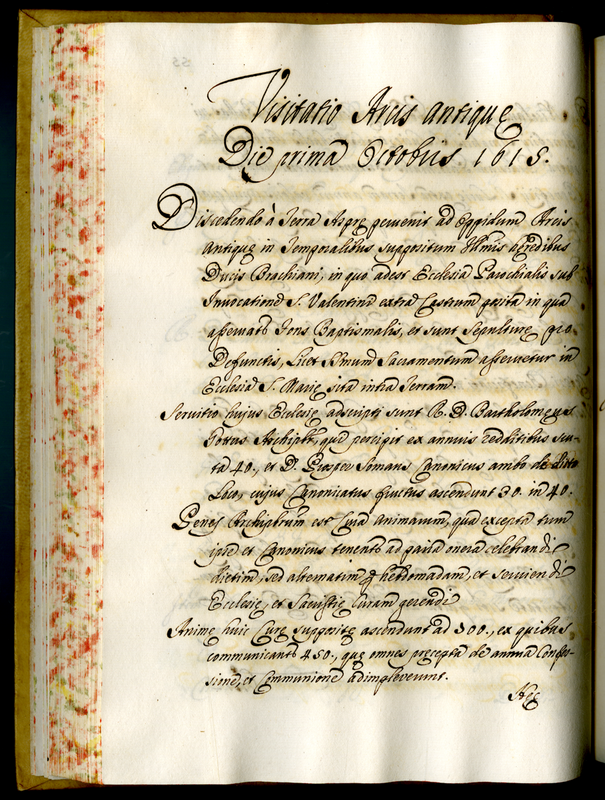 Visitatio Arcis antique
Die prima Octobris 1615.
Discedendo à Terra Aspre pervenit ad Oppidum Arcis
Antique in Temporalibus suppositum Illmis heredibus
Ducis Brachiani, in quo adest Ecclesia Parochialis sub
Invocatione S. Valentini extra Castrum posita in qua
asservatr Fons Baptismalis, et sunt sepulture pro
Defunctis, licet SSmum Sacramentum asservetur in
Ecclesia S. Marie sita intra Terram.
Servitio hujus Ecclesie adscripti sunt R. D. Bartholomeus
Archiprbr, qui percipit ex annuis redditibus scu-
ta 40., et D. Prosper Canonicus ambo de dicto
Loco, cujus Canonicatus fructus ascendunt 30. in 40.
Penes Archiprbrum est Cura Animarum, qua excepta tum
ipse et Canonicus tenentr ad paria onera celebrandi
dietim, sed alternatim p hebdomadam, et serviendi
Ecclesie, et Sacristie Curam gerendi
Anime huic Cure supposite ascendunt ad 500., ex quibus
communicantr 450., que omnes precepta de annua Confes-
sione, et Communione adimpleverunt.
Hec